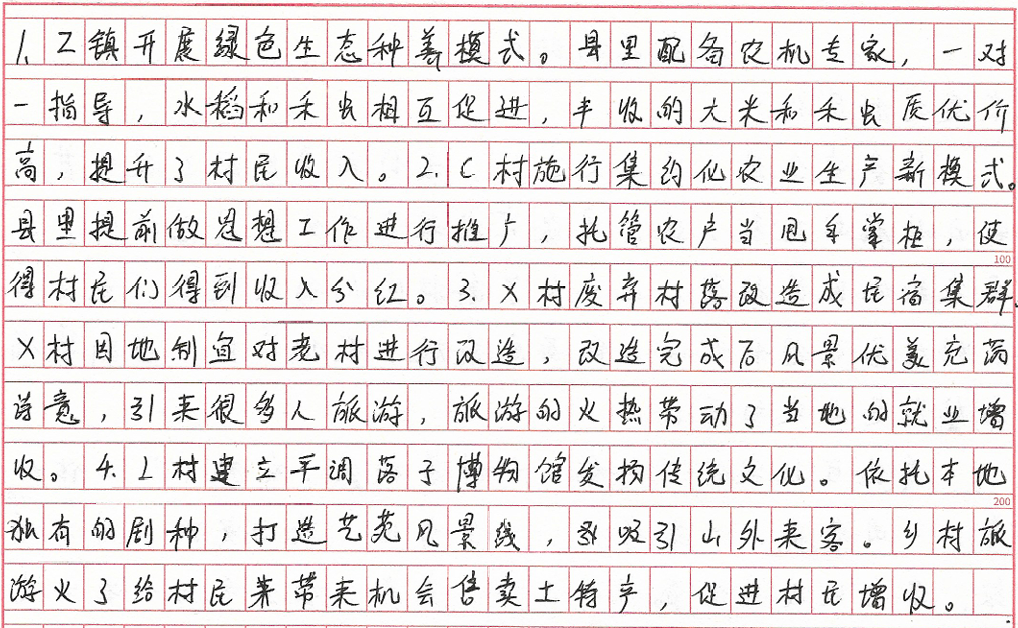 1、Z镇开展绿色生态种养模式。县里配备农机专家，一对
一指导，水稻和禾虫相互促进，丰收的大米和禾虫质优价
高，提升了村民收入。2.C村施行集约化农业生产新模式。
县里提前做思想工作进行推广，托管农户当甩手掌柜，使
得村民们得到收入分红。3.X村废弃村落改造成民宿集群。
100
X村因地制宜对老村进行改造，改造完成后风景优美充满
诗意，引来很多人旅游，旅游的火热带动了当地的就业增
收。4.L村建立平调落子博物馆发扬传统文化。依托本地
200
独有的剧种，打造艺苑风景线，吸引山外来客。乡村旅
游火了给村民带来机会售卖土特产，促进村民增收。